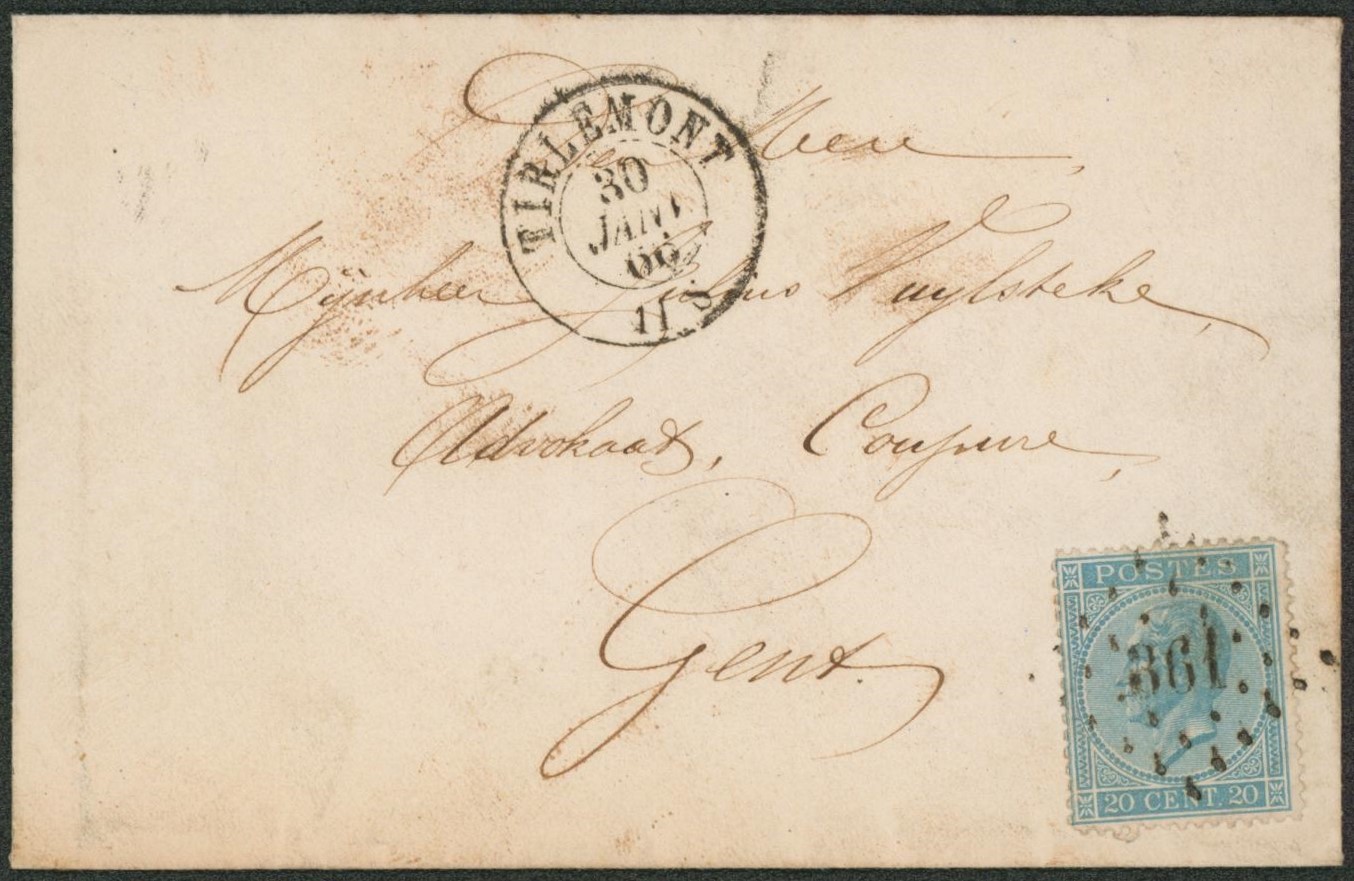 De Heer
Mijnheer Julius Vuylsteke,
Advokaat, Coupure,
Gent.
TIRLEMONT
30
JANV
66
11
POSTES
361
20 CENT. 20